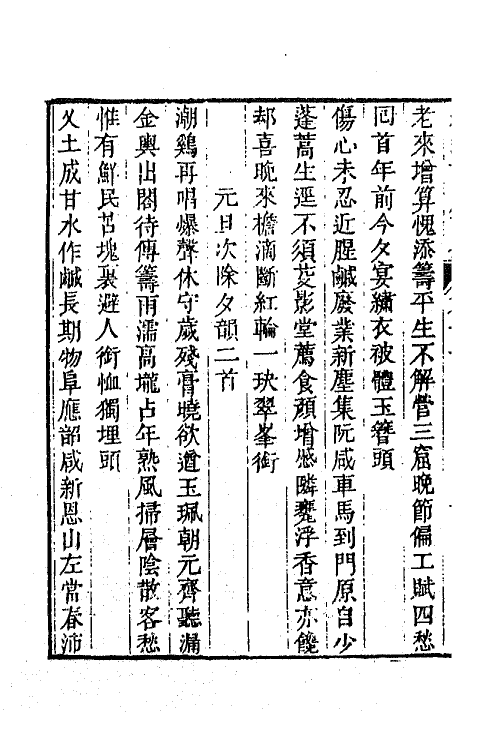 老來增算愧添籌平生不解營三窟晚節偏工賦四愁
回首年前今夕宴繡衣被體玉簪頭
傷心未忍近腥鹹廢業新塵集阮咸車馬到門原自少
蓬蒿生逕不須芟影堂薦食顏增慼隣甕浮香意亦饞
却喜晚來檐滴斷紅輪一玦翠峯銜
元旦次除夕韻二首
潮鷄再唱爆聲休守歲殘膏曉欲遒玉珮朝元齊聽漏
金輿出閤待傳籌雨濡高壠占年熟風掃層陰散客愁
惟有鮮民苫塊裏避人銜恤獨埋頭
乂土成甘水作鹹長期物阜應韶咸新恩山左當春沛